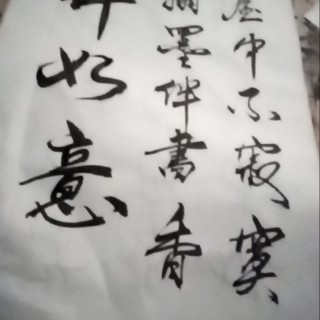 屋中不寂寞
墨伴書香
如意